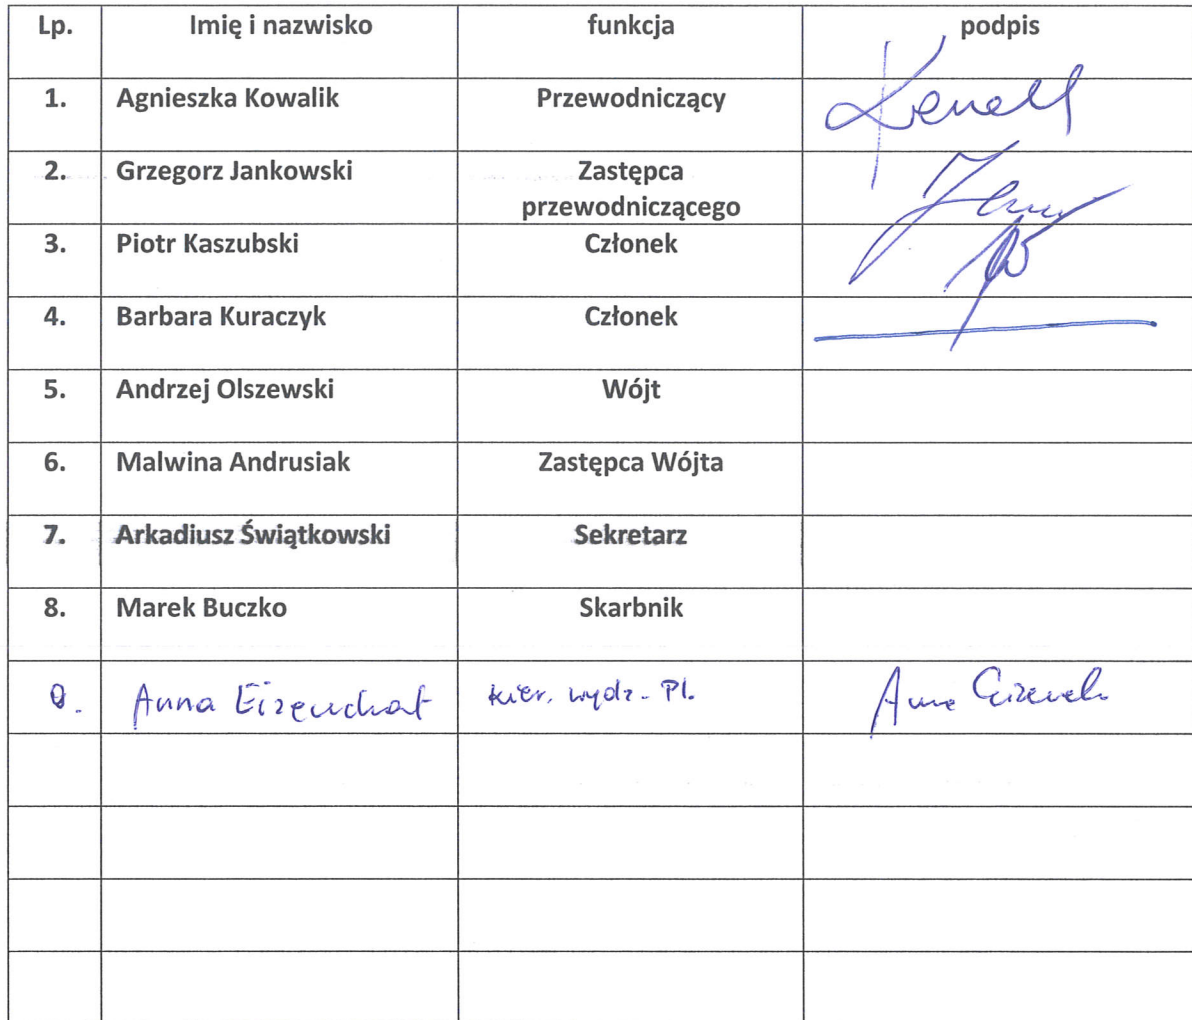 Lp. Imię i nazwisko funkcja podpis
1. Agnieszka Kowalik Przewodniczący
2. Grzegorz Jankowski Zastępca
przewodniczącego
3. Piotr Kaszubski Członek
4. Barbara Kuraczyk Członek
5. Andrzej Olszewski Wójt
6. Malwina Andrusiak Zastępca Wójta
7. Arkadiusz Świątkowski Sekretarz
8. Marek Buczko Skarbnik
9. Anna kier. wydz. Pl.